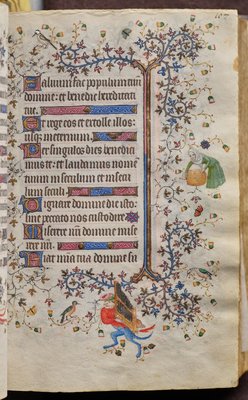 Saluum fac populum tuū
domine: et benedic hereditati
tue.
Et rege eos et extolle illos
usq; in eternum.
Per singulos dies benedici
mus te: et laudamus nomē
tuum in seculum et in secu
lum seculi
Dignare domine die isto:
sine peccato nos custodire
Miserere nr̄i domine mise
rere nr̄i.
Fiat mīa tua domine su